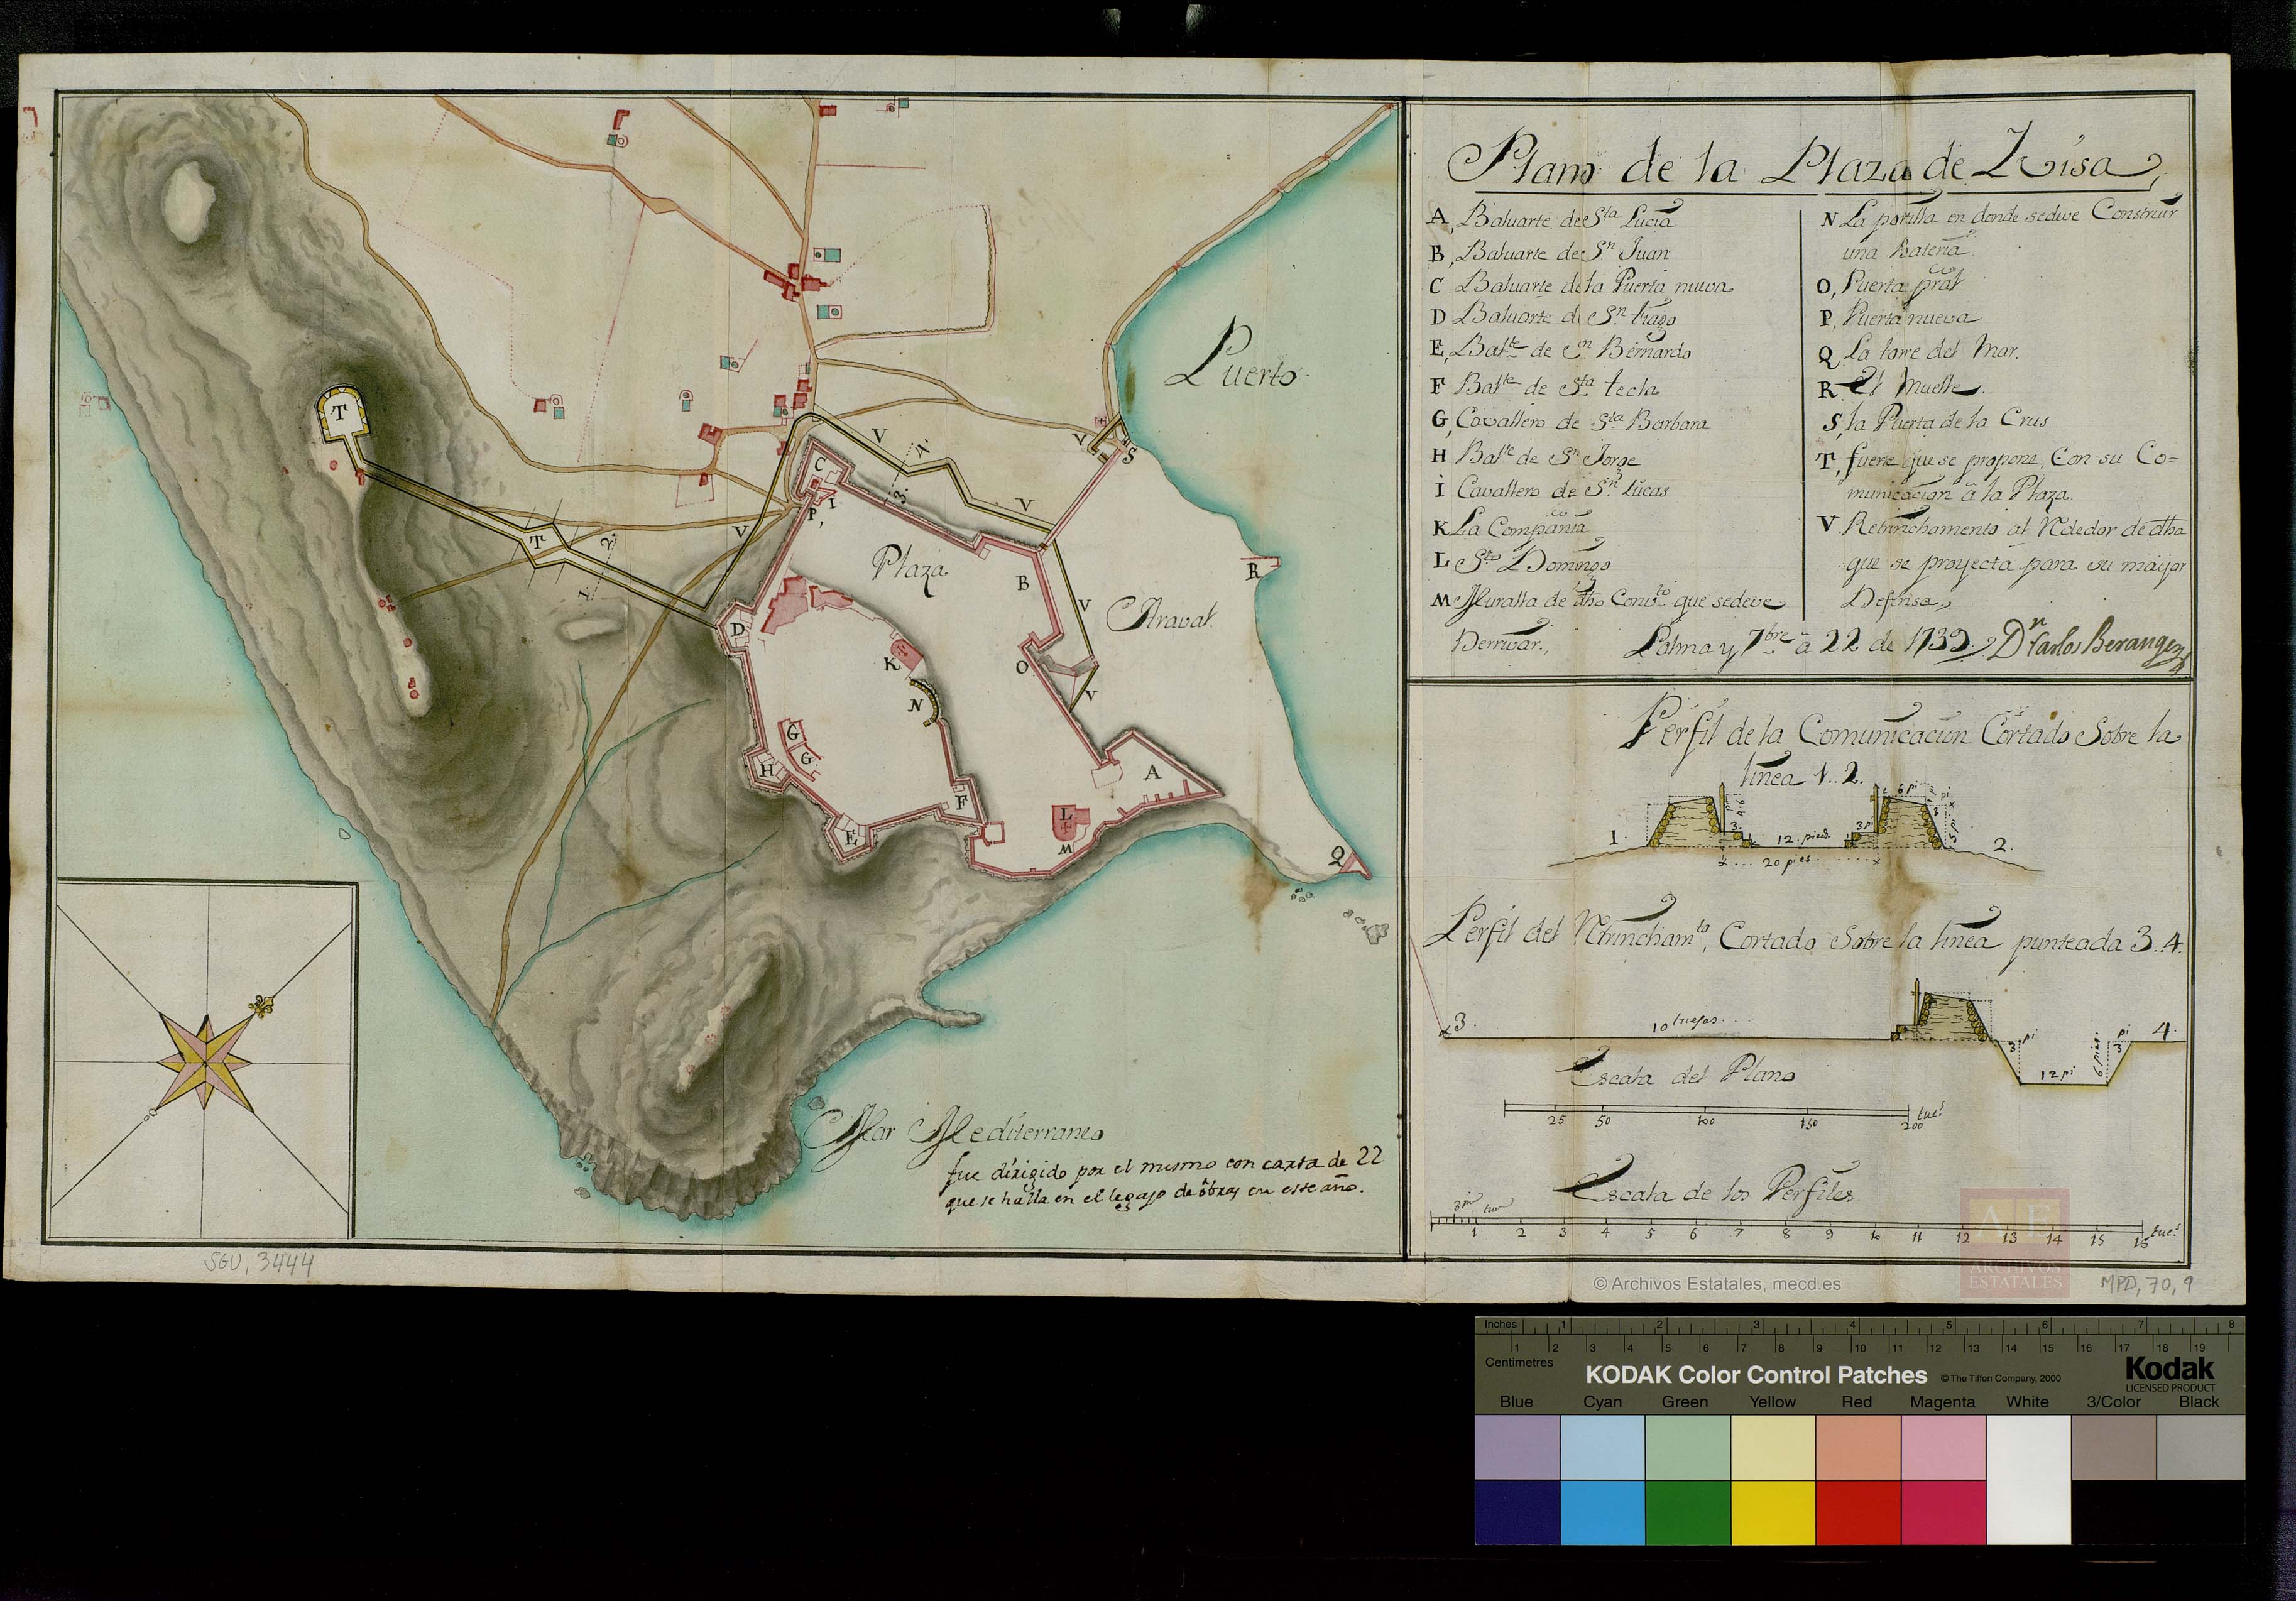 Plano de la Plaza de Ivisa,
A, Baluarte de Sta Lucia
B, Baluarte de Sn Juan
C Baluarte de la Puerta nueva
D Baluarte de Sn tiago
E, Balte de Sn Bernardo
F Balte de Sta tecla
G, Cavallero de Sta Barbara
H Balte de Sn Jorge
I Cavallero de Sn Lucas
K La Compañia
L Sto Domingo
M Muralla de dho Convto que se deve
Derrivar,
N La portilla en donde se deve Construir
una Bateria
O, Puerta pral
P, Puerta nueva
Q La torre del Mar.
R El Muelle.
S, la Puerta de la Crus
T, fuerte que se propone, Con su Co=
municacion â la Plaza
V Retrinchamento al Rededor de dha
que se proyecta para su maijor
Defensa,
Palma y 7bre â 22 de 1739, Dn Carlos Beranger
Perfil de la Comunicacion Cortado Sobre la
linea 1..2.
1.
3.
12. pieds
3 pi
6 pi
20 pies
2.
Perfil del Rtrinchamto, Cortado Sobre la linea punteada 3..4.
3.
10 tuesas
3 pi
12 pi
6 pies
pi 3
4.
Escala del Plano
25 50 100 150 200 tues
Escala de los Perfiles
3 pi tue
1 2 3 4 5 6 7 8 9 10 11 12 13 14 15 16 tues
Puerto
T
V
4.
V
S
C
3.
I
P,
V
V
T
2.
1.
Plaza
R
B
V
Arraval.
D
K
O
N
V
G
G
H
A
F
L
E
M
Q
Mar Mediterraneo
fue dirigido por el mismo con carta de 22
que se halla en el legajo de obras en este año.
SGU, 3444
MPD, 70, 9
© Archivos Estatales, mecd.es
AE
ARCHIVOS
ESTATALES
Inches 1 2 3 4 5 6 7 8
Centimetres 1 2 3 4 5 6 7 8 9 10 11 12 13 14 15 16 17 18 19
KODAK Color Control Patches © The Tiffen Company, 2000
Kodak
LICENSED PRODUCT
Blue Cyan Green Yellow Red Magenta White 3/Color Black